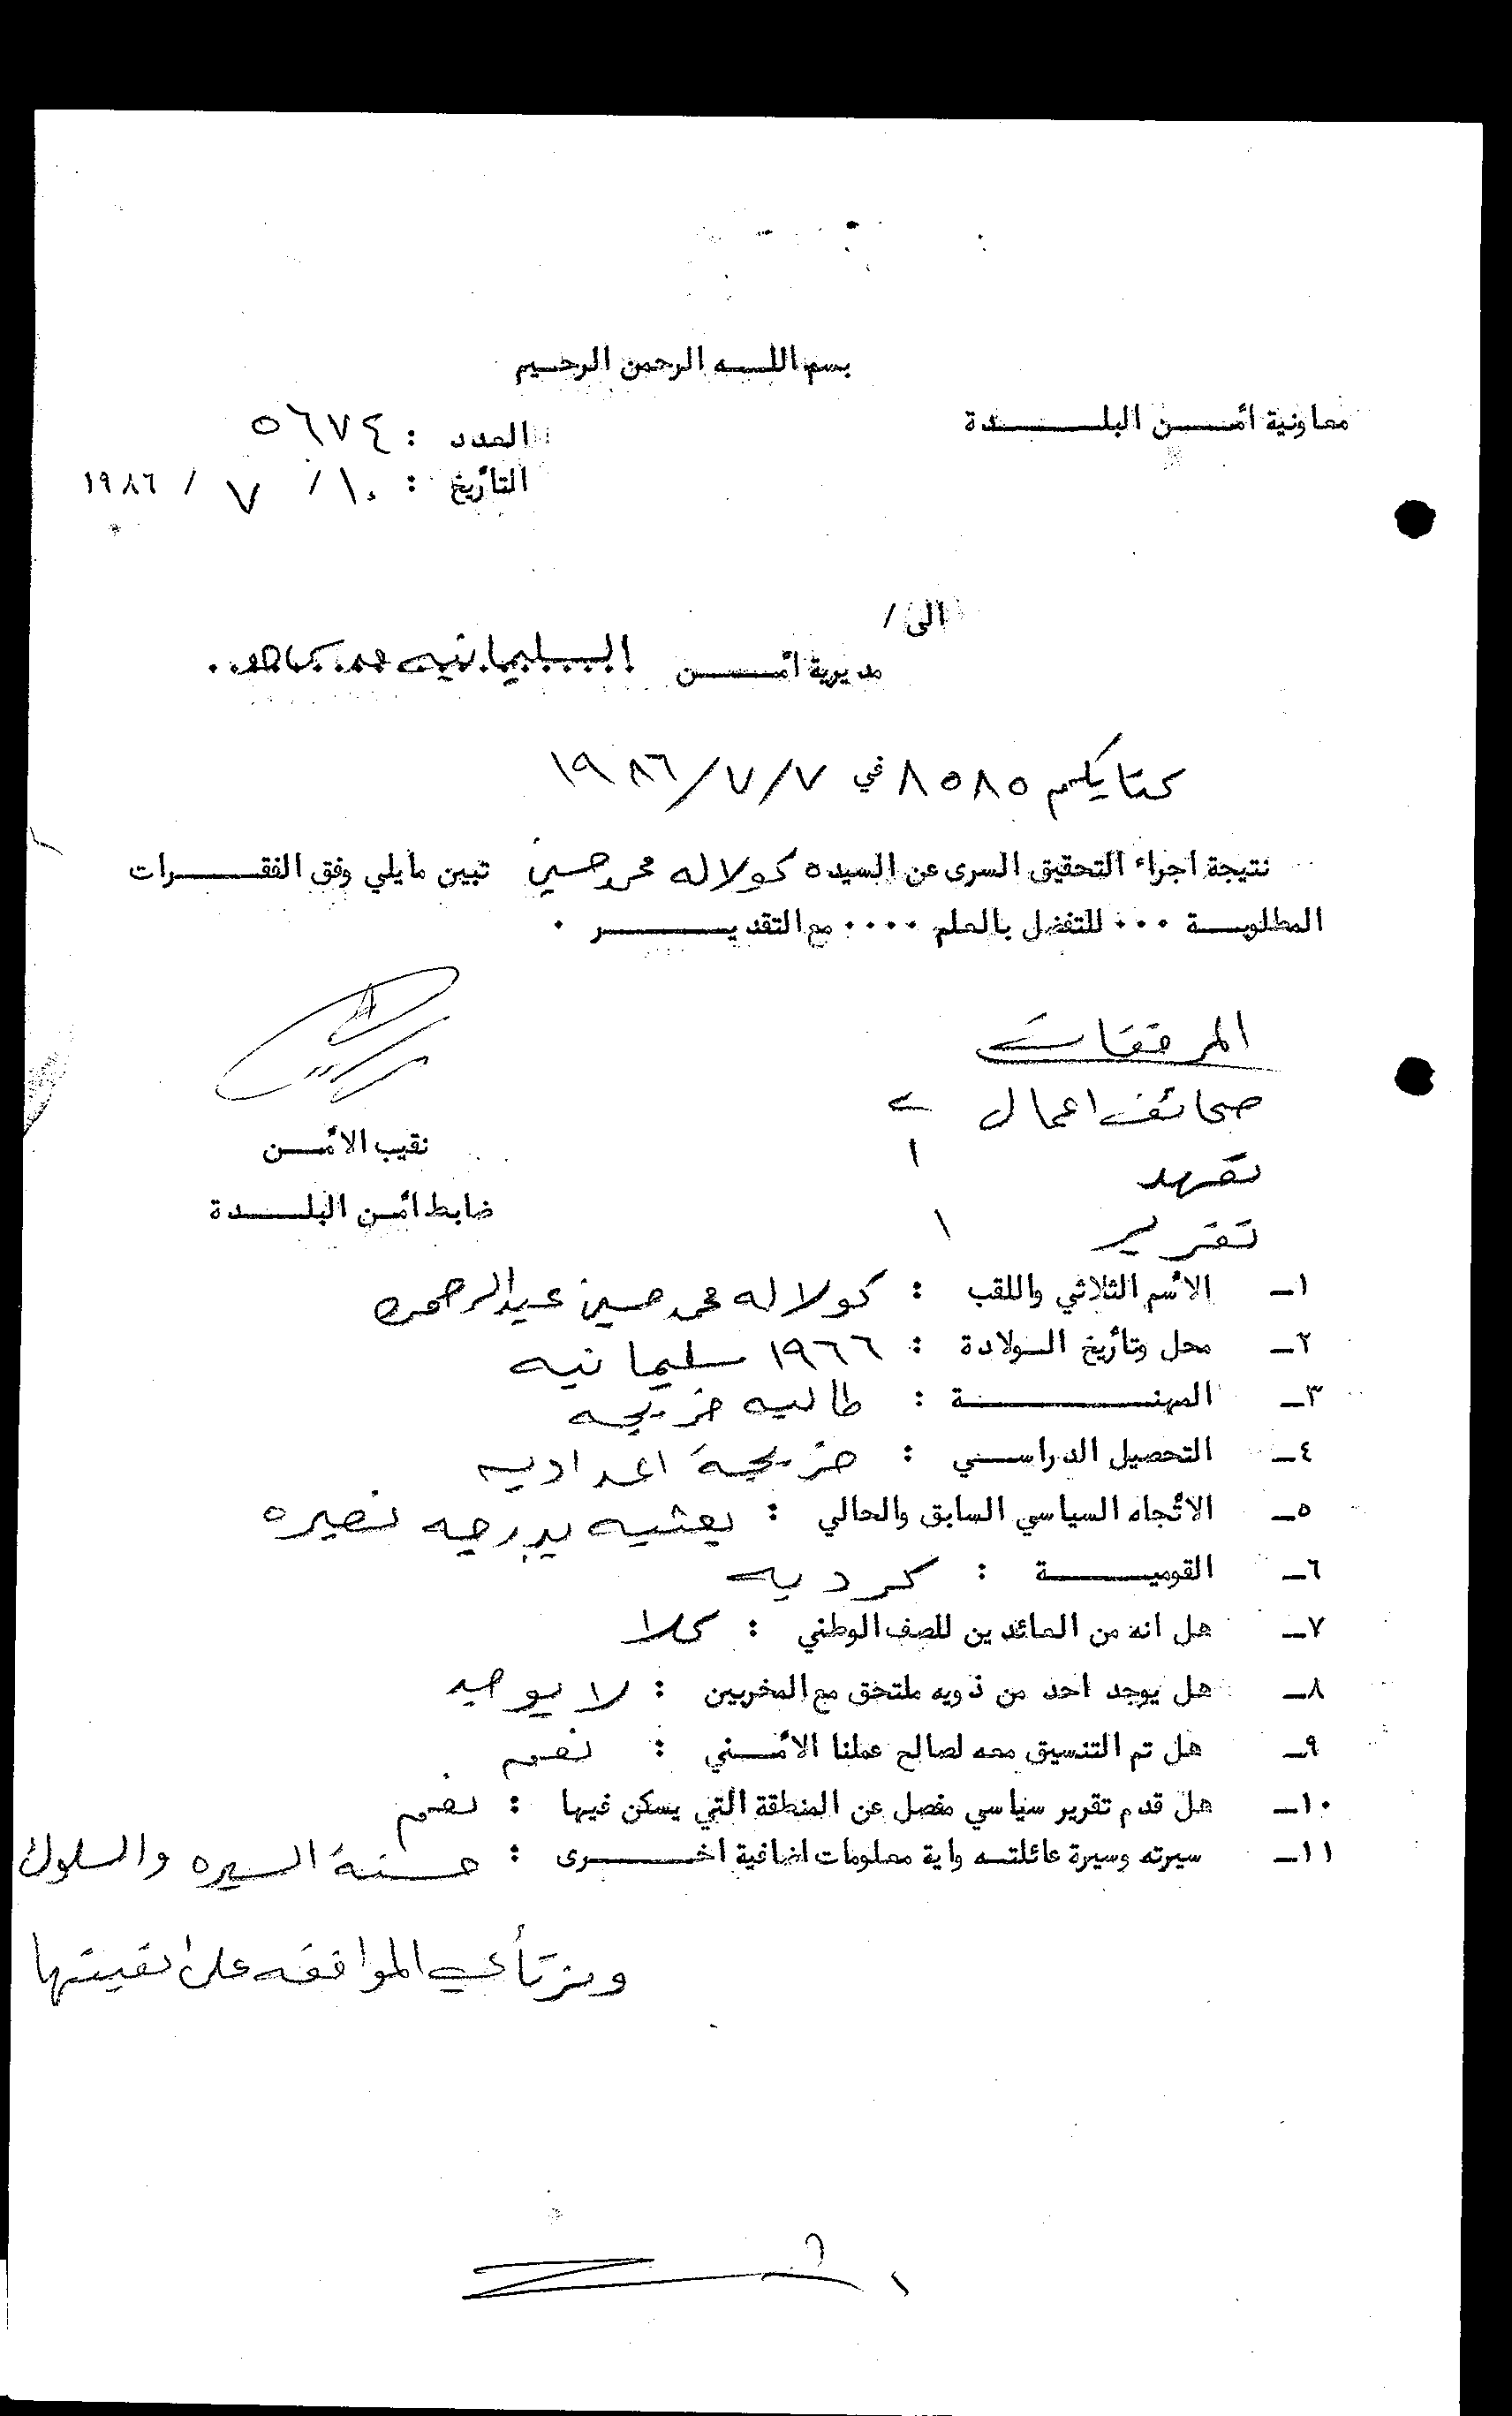 بسم اللـــه الرحمن الرحـيم
معاونية أمــــن البلـــــــدة
العدد : ٥٦٧٤
التأريخ : ١٠ / ٧ / ١٩٨٦
الى /
مديرية أمـــــن السليمانيه
كتابكم ٨٥٨٥ في ٧/٧/١٩٨٦
نتيجة اجراء التحقيق السرى عن السيده كولاله محمد حسين تبين مايلي وفق الفقـــــرات
المطلوبـــة ٠٠٠ للتفضل بالعلم ٠٠٠٠ مع التقديـــــــر ٠
المرفقات
صحائف اعمال ٢
تعهد ١
تقرير ١
نقيب الأمـــن
ضابط أمـن البلـــــدة
١ــ الأسم الثلاثي واللقب : كولاله محمد حسين عبدالرحمن
٢ــ محل وتأريخ الـولادة : ١٩٦٦ سليمانيه
٣ــ المهنـــــــــــة : طالبه خريجه
٤ــ التحصيل الدراســـي : خريجة اعداديه
٥ــ الأتجاه السياسي السابق والحالي : بعثيه بدرجه نصيره
٦ــ القوميـــــــة : كرديه
٧ــ هل انه من العائدين للصف الوطني : كلا
٨ــ هل يوجد احد من ذويه ملتحق مع المخربين : لا يوجد
٩ــ هل تم التنسيق معه لصالح عملنا الأمـــني : نعم
١٠ــ هل قدم تقرير سياسي مفصل عن المنطقة التي يسكن فيها : نعم
١١ــ سيرته وسيرة عائلتـــه واية معلومات اضافية اخـــــرى : حسنة السيره والسلوك
ونرتأي الموافقه على تعيينها